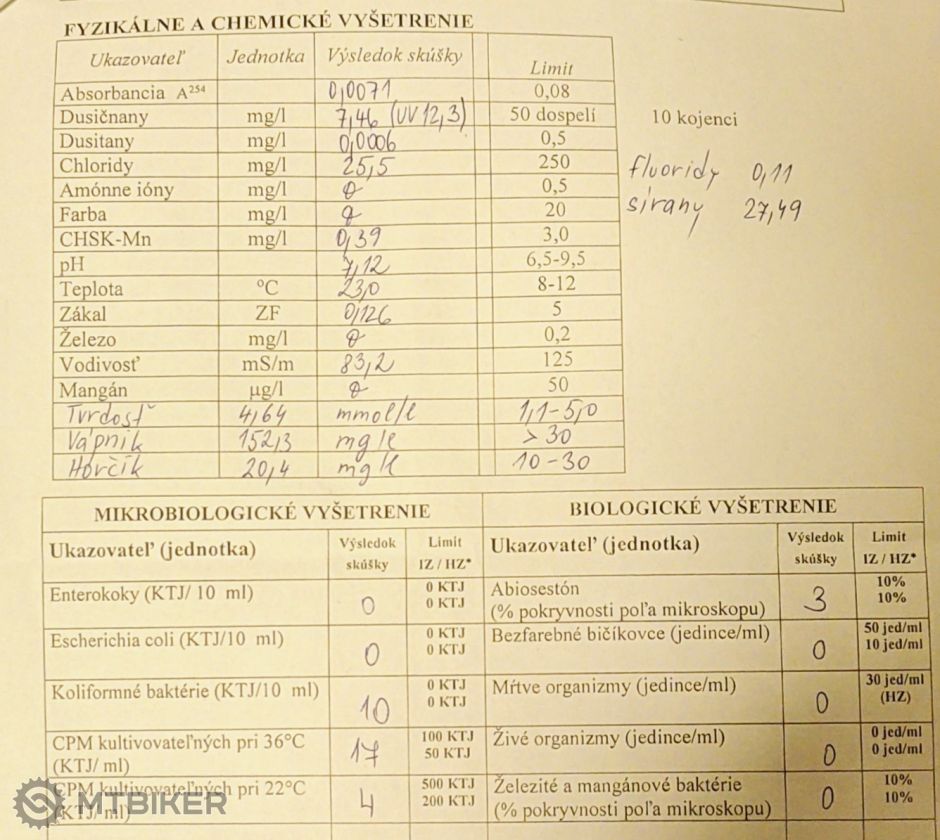 FYZIKÁLNE A CHEMICKÉ VYŠETRENIE
Ukazovateľ Jednotka Výsledok skúšky Limit
Absorbancia A254 0,0071 0,08
Dusičnany mg/l 7,46 (UV 12,3) 50 dospelí 10 kojenci
Dusitany mg/l 0,0006 0,5
Chloridy mg/l 25,5 250 fluoridy 0,11
Amónne ióny mg/l 0 0,5
Farba mg/l 0 20 sírany 27,49
CHSK-Mn mg/l 0,39 3,0
pH 7,12 6,5-9,5
Teplota °C 23,0 8-12
Zákal ZF 0,126 5
Železo mg/l 0 0,2
Vodivosť mS/m 83,2 125
Mangán µg/l 0 50
Tvrdosť 4,64 mmol/l 1,1-5,0
Vápnik 152,3 mg/l > 30
Horčík 20,4 mg/l 10-30
MIKROBIOLOGICKÉ VYŠETRENIE BIOLOGICKÉ VYŠETRENIE
Ukazovateľ (jednotka) Výsledok skúšky Limit IZ / HZ* Ukazovateľ (jednotka) Výsledok skúšky Limit IZ / HZ*
Enterokoky (KTJ/ 10 ml) 0 0 KTJ 0 KTJ Abiosestón (% pokryvnosti poľa mikroskopu) 3 10% 10%
Escherichia coli (KTJ/10 ml) 0 0 KTJ 0 KTJ Bezfarebné bičíkovce (jedince/ml) 0 50 jed/ml 10 jed/ml
Koliformné baktérie (KTJ/10 ml) 10 0 KTJ 0 KTJ Mŕtve organizmy (jedince/ml) 0 30 jed/ml (HZ)
CPM kultivovateľných pri 36°C (KTJ/ ml) 17 100 KTJ 50 KTJ Živé organizmy (jedince/ml) 0 0 jed/ml 0 jed/ml
CPM kultivovateľných pri 22°C (KTJ/ ml) 4 500 KTJ 200 KTJ Železité a mangánové baktérie (% pokryvnosti poľa mikroskopu) 0 10% 10%
MTBIKER